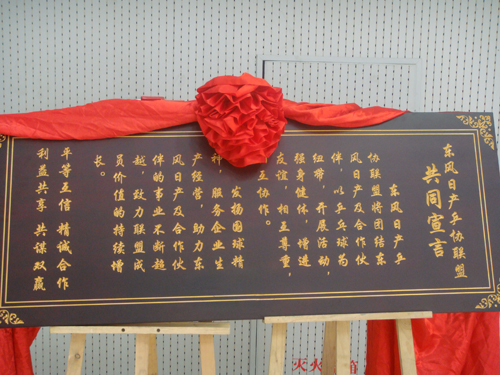 东风日产乒协联盟
共同宣言
东风日产乒
协联盟将团结东
风日产及合作伙
伴，以乒乓球为
纽带，开展活动，
强身健体，增进
友谊，相互尊重，
互协作。
发扬国球精
神，服务企业生
产经营，助力东
风日产及合作伙
伴的事业不断超
越，致力联盟成
员价值的持续增
长。
平等互信 精诚合作
利益共享 共谋双赢
灭火 箱